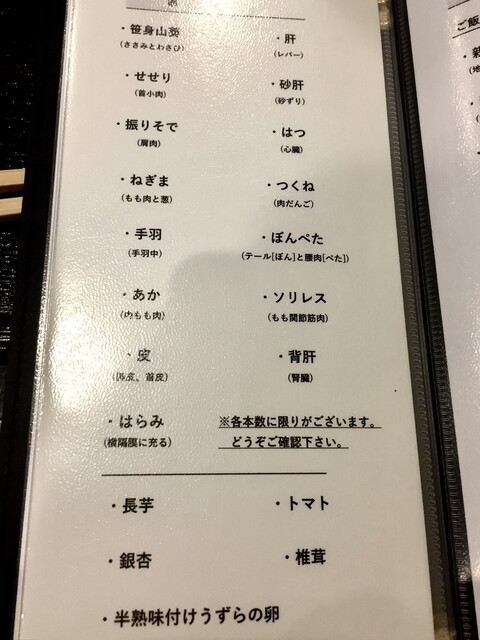 ・笹身山葵
(ささみとわさび)
・肝
(レバー)
・せせり
(首小肉)
・砂肝
(砂ずり)
・振りそで
(肩肉)
・はつ
(心臓)
・ねぎま
(もも肉と葱)
・つくね
(肉だんご)
・手羽
(手羽中)
・ぼんぺた
(テール[ぼん]と腰肉[ぺた])
・あか
(内もも肉)
・ソリレス
(もも関節筋肉)
・皮
・背肝
(腎臓)
・はらみ
(横隔膜に充る)
※各本数に限りがございます。
どうぞご確認下さい。
・長芋
・トマト
・銀杏
・椎茸
・半熟味付けうずらの卵
ご飯